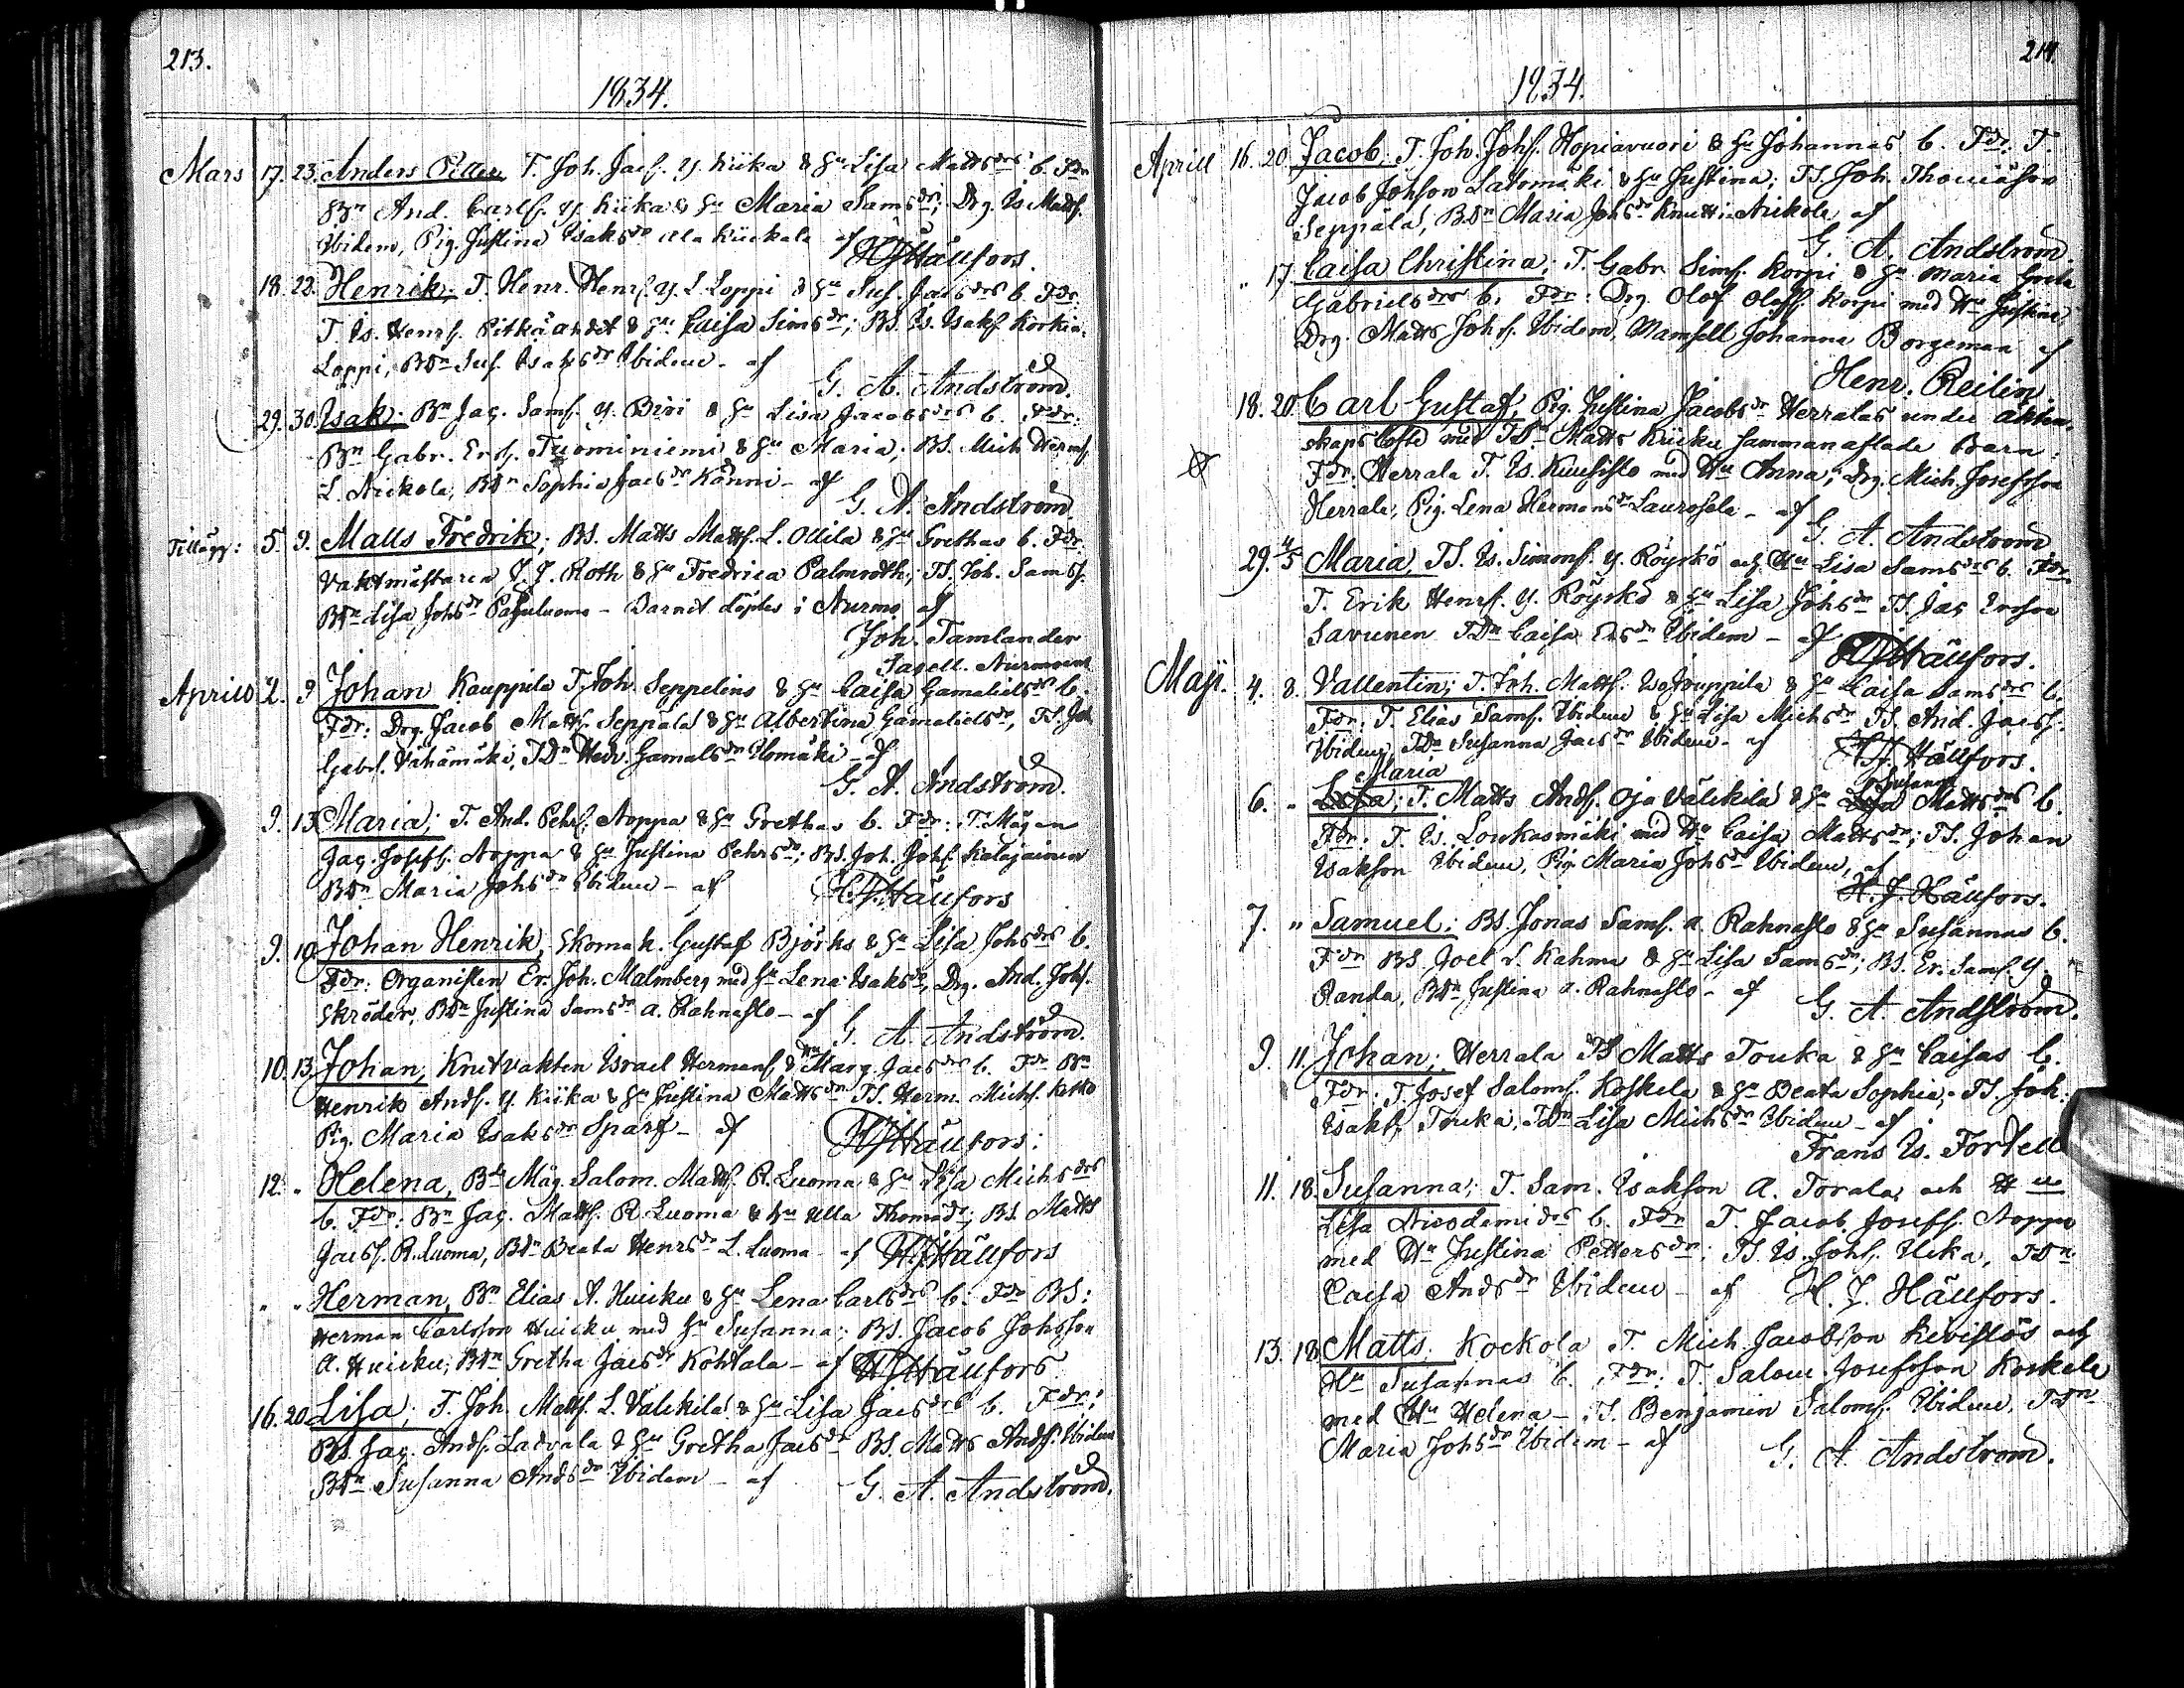 213.
1834.
Mars 17. 23. Anders Petter T. Joh. Jacs. Y. Kiika & Hu Lisa Mattsdrs b. Fdr
Bn And. Carls. Y. Kiika & Hu Maria Samsdr; Drg. Is. Matts.
Ibidem, Pig. Justina Isaksdr Ala Kiickala af HJHällfors.
18. 23. Henrik; T. Henr. Henrs. Y. L. Loppi & Hu Sus. Jacsdrs b. Fdr:
T. Is. Henrs. Pitkä andet & Hu Caisa Simsdr; BS. Is. Isaks. Korkia.
Loppi, BDr Sus. Isaksdr Ibidem - af
G. A. Andström.
29. 30. Isak; Bn Jac. Sams. Y. Biri & Hu Lisa Jacobsdrs b. Fdr:
Bn Gabr. Ers. Tuominiemi & Hu Maria; BS. Mich Herms.
L. Nickola, BDr Sophia Jacsdr Känni - af
G. A. Andström
Tillägg: 5. 9. Matts Fredrik; BS. Matts Matts. L. Ollila & Hu Grethas b. Fdr:
Vaktmästaren J. J. Roth & Hu Fredrica Palmroth; TS. Joh. Sams.
BDr Lisa Johsdr Pajuluoma - Barnet döptes i Nurmo af
Joh. Tamlander
Sacell. Nurmoens.
Aprill 2. 9 Johan Kauppila T. Joh. Seppelins & Hu Caisa Gamalielsdrs b.
Fdr: Drg. Jacob Matts. Seppälä & Hu Albertina Gamalielsdr, TS. Joh
Gabrs. Vähämäki, TDr Hedv. Gamalsdr Ulomäki - af
G. A. Andström.
9. 13. Maria; T. And. Pehrs. Noppa & Hu Grethas b. Fdr: T. Mågen
Jac. Josefs. Noppa & Hu Justina Pehrsdr; BS. Joh. Johs. Kalajainen
BDr Maria Johsdr Ibidem - af HJHällfors
9. 10. Johan Henrik, Skomak. Gustaf Björks & Hu Lisa Johsdrs b.
Fdr: Organisten Er. Joh. Malmberg med Hu Lena Isaksdr, Drg. And. Johs.
Skröder, BDr Justina Samsdr A. Rahnasto - af
G. A. Andström.
10. 13. Johan, Knutvakten Israel Hermans. & Hu Marg. Jacsdrs b. Fdr Bn
Henrik Ands. Y. Kiika & Hu Justina Mattsdr TS. Herm. Michs. Katko
Pig. Maria Isaksdr Sparf - af HJHällfors:
12. „ Helena, Bds Måg. Salom. Matts. R. Luoma & Hu Lisa Michsdrs
b. Fdr: Bn Jac. Matts. R. Luoma & Hu Ulla Thomadr; BS. Matts
Jacs. R. Luoma, BDr Beata Henrsdr L. Luoma af HJHällfors
„ „ Herman, Bn Elias A. Huicku & Hu Lena Carlsdrs b. Fdr BS:
Herman Carlsson Huicku med Hu Susanna; BS. Jacob Johsson
A. Huicku, BDr Gretha Jacsdr Kohtala - af HJHällfors
16. 20. Lisa; T. Joh. Matts. L. Välikilä & Hu Lisa Jacsdrs b. Fdr:
BS. Jac. Ands. Ladvala & Hu Gretha Jacsdr BS. Matts Ands. Ibidem
BDr Susanna Andsdr Ibidem - af G. A. Andström.
214.
1834.
Aprill 16. 20. Jacob; T. Joh. Johs. Hopiavuori & Hu Johannas b. Fdr. T.
Jacob Johson Latomäki & Hu Justina; TS. Joh. Thomäson
Seppälä, BDr Maria Johsdr Knutti Nickola af
G. A. Andström.
„ 17. Caisa Christina; T. Gabr. Sims. Korpi & Hu Maria Greta
Gabrielsdrs b. Fdr: Drg. Olof Olofs. Korpi med Hu Justina
Drg. Matts Johs. Ibidem, Mamsell Johanna Borgeman af
Henr. Reilin.
18. 20. Carl Gustaf, Pig. Justina Jacobsdr Herralas under äkten-
skaps löfte med TDn Matts Kiicku sammanaflade barn:
Fdr: Herrala T. Is. Kuusisto med Hu Anna; Drg. Mich. Josefsson
Herrala, Pig. Lena Hermansdr Laurosela - af
G. A. Andström
29. 4/5 Maria, TS. Is. Simons. Y. Röyskö och Hu Lisa Samsdrs b. Fdr.
T. Erik Henrs. Y. Röyskö & Hu Lisa Johsdr TS. Jac Ersson
Savunen TDr Caisa Ersdr Ibidem - af
HJHällfors.
Maji. 4. 8. Vallentin; T. Joh. Matts. Iso Jouppila & Hu Caisa Samsdrs b.
Fdr: T. Elias Sams. Ibidem & Hu Lisa Michsdr TS. And. Jacs.
Ibidem, TDr Susanna Jacsdr Ibidem - af HJ. Hällfors.
Maria Susanna
6. „ Lisa; T. Matts Ands. Oja Välikilä & Hu Lisa Mattsdrs b.
Fdr: T. Is. Loukasmäki med Hu Caisa Mattsdr; TS. Johan
Isakson Ibidem, Pig. Maria Johsdr Ibidem, af
H. J. Hällfors.
7. „ Samuel; BS. Jonas Sams. A. Rahnasto & Hu Susannas b.
Fdr BS. Joel L. Kahma & Hu Lisa Samsdr; BS. Er. Sams. Y.
Randa, BDr Justina A. Rahnasto - af G. A. Andström.
9. 11. Johan; Herrala TS Matts Touka & Hu Caisas b.
Fdr: T. Josef Saloms. Koskela & Hu Beata Sophia; TS. Joh.
Isaks. Touka, TDr Lisa Michsdr Ibidem - af
Frans Is. Fortell
11. 18. Susanna; T. Sam. Isakson A. Torala och Hu
Lisa Nicodemidrs b. Fdr T. Jacob Josefs. Noppa
med Hu Justina Pettersdr; TS. Is. Johs. Ucka, TDr
Caisa Andsdr Ibidem - af H. J. Hällfors.
13. 18. Matts; Kockola T. Mich Jacobson Kevistös och
Hu Susannas b. Fdr: T. Salom. Josefsson Koskela
med Hu Helena - TS. Benjamin Saloms. Ibidem, TDr
Maria Johsdr Ibidem - af G. A. Andström.